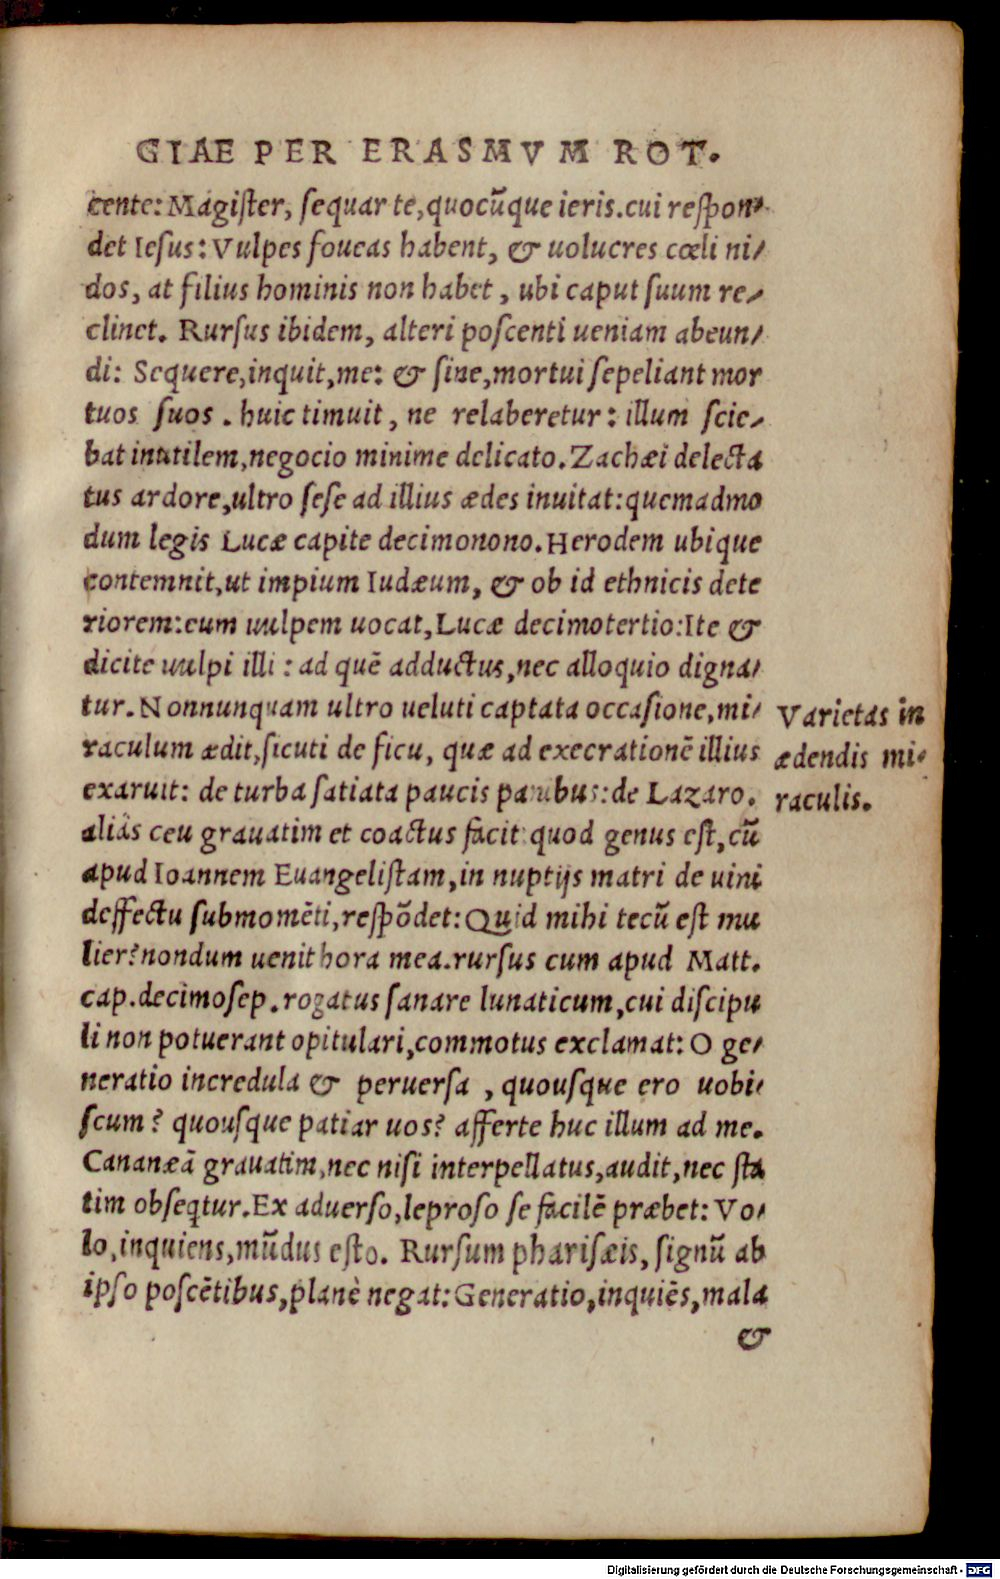 GIAE PER ERASMVM ROT.
cente: Magister, sequar te, quocũque ieris. cui respon⸗
det Iesus: Vulpes foueas habent, & uolucres cœli ni⸗
dos, at filius hominis non habet, ubi caput suum re⸗
clinet. Rursus ibidem, alteri poscenti ueniam abeun⸗
di: Sequere, inquit, me: & sine, mortui sepeliant mor
tuos suos. huic timuit, ne relaberetur: illum scie⸗
bat inutilem, negocio minime delicato. Zachæi delecta
tus ardore, ultro sese ad illius ædes inuitat: quemadmo
dum legis Lucæ capite decimonono. Herodem ubique
contemnit, ut impium Iudæum, & ob id ethnicis dete
riorem: eum uulpem uocat, Lucæ decimotertio: Ite &
dicite uulpi illi: ad quẽ adductus, nec alloquio digna⸗
tur. Nonnunquam ultro ueluti captata occasione, mi⸗
raculum ædit, sicuti de ficu, quæ ad execrationẽ illius
exaruit: de turba satiata paucis panibus: de Lazaro.
aliâs ceu grauatim et coactus facit quod genus est, cũ
apud Ioannem Euangelistam, in nuptijs matri de uini
deffectu submomẽti, respõdet: Quid mihi tecũ est mu
lier? nondum uenit hora mea. rursus cum apud Matt.
cap. decimosep. rogatus sanare lunaticum, cui discipu
li non potuerant opitulari, commotus exclamat: O ge⸗
neratio incredula & peruersa, quousque ero uobi⸗
scum? quousque patiar uos? afferte huc illum ad me.
Cananæã grauatim, nec nisi interpellatus, audit, nec sta
tim obseqtur. Ex aduerso, leproso se facilẽ præbet: Vo⸗
lo, inquiens, mũdus esto. Rursum pharisæis, signũ ab
ipso poscẽtibus, planè negat: Generatio, inquiẽs, mala
&
Varietas in
ædendis mi⸗
raculis.
Digitalisierung gefördert durch die Deutsche Forschungsgemeinschaft - DFG